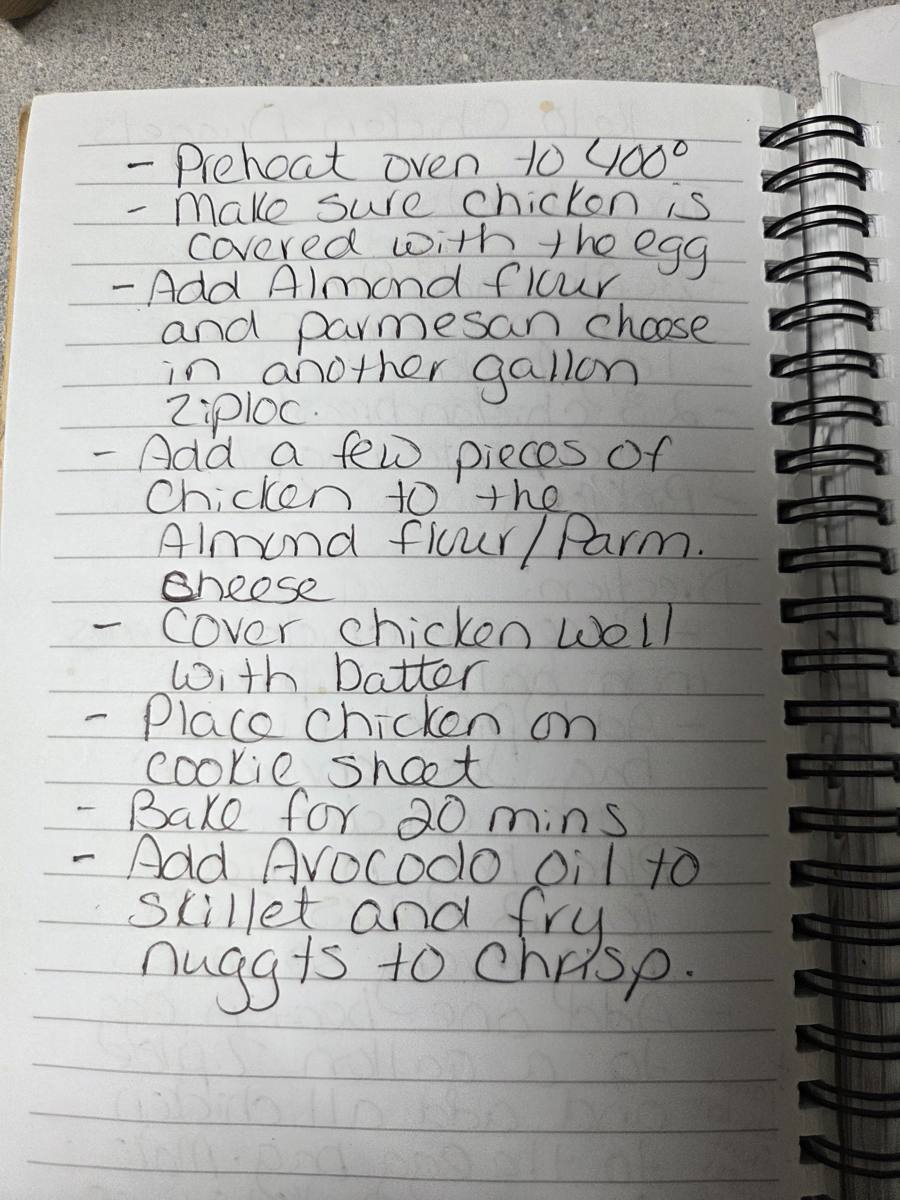 - Preheat oven to 400°
- Make sure chicken is
covered with the egg
- Add Almond flour
and parmesan cheese
in another gallon
Ziploc.
- Add a few pieces of
Chicken to the
Almond flour/Parm.
cheese
- Cover chicken well
with batter
- Place Chicken on
cookie sheet
- Bake for 20 mins
- Add Avocodo oil to
skillet and fry
nuggts to Chrisp.